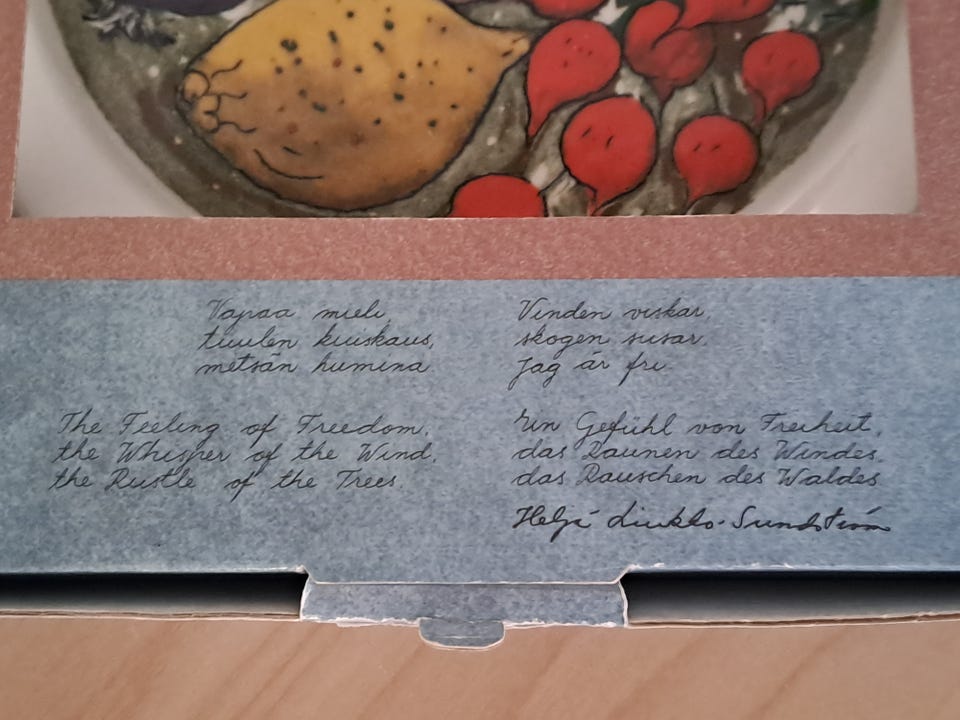 Vapaa mieli,
tuulen kuiskaus,
metsän humina.
Vinden viskar,
skogen susar.
Jag är fri.
The Feeling of Freedom,
the Whisper of the Wind,
the Rustle of the Trees.
Ein Gefühl von Freiheit,
das Raunen des Windes,
das Rauschen des Waldes
Heljä Liukko-Sundström